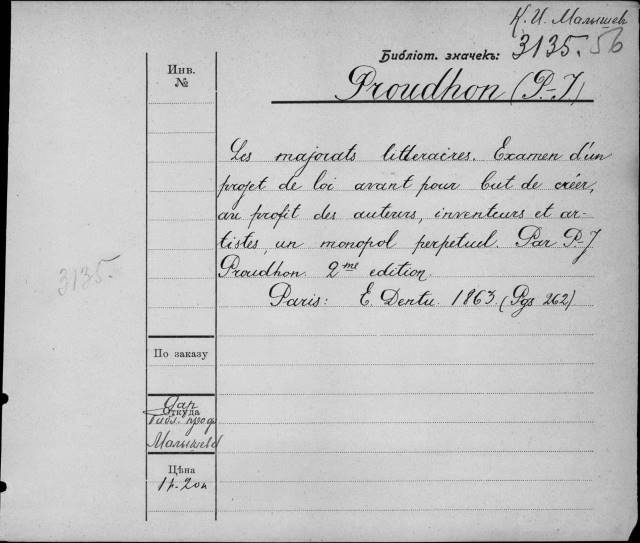 К. И. Малышев
Библіот. значекъ: 3135. 56
Инв.
№
Proudhon (P-J)
Les majorats litteraires. Examen d'un
projet de loi avant pour but de créer,
au profit des auteurs, inventeurs et ar-
tistes, un monopol perpetuel. Par P-J
Proudhon. 2me edition.
3135.
Paris: E. Dentu. 1863. (Pgs 262)
По заказу
Дар
Откуда
Библ. проф
Малышева
Цѣна
1 р. 20 к